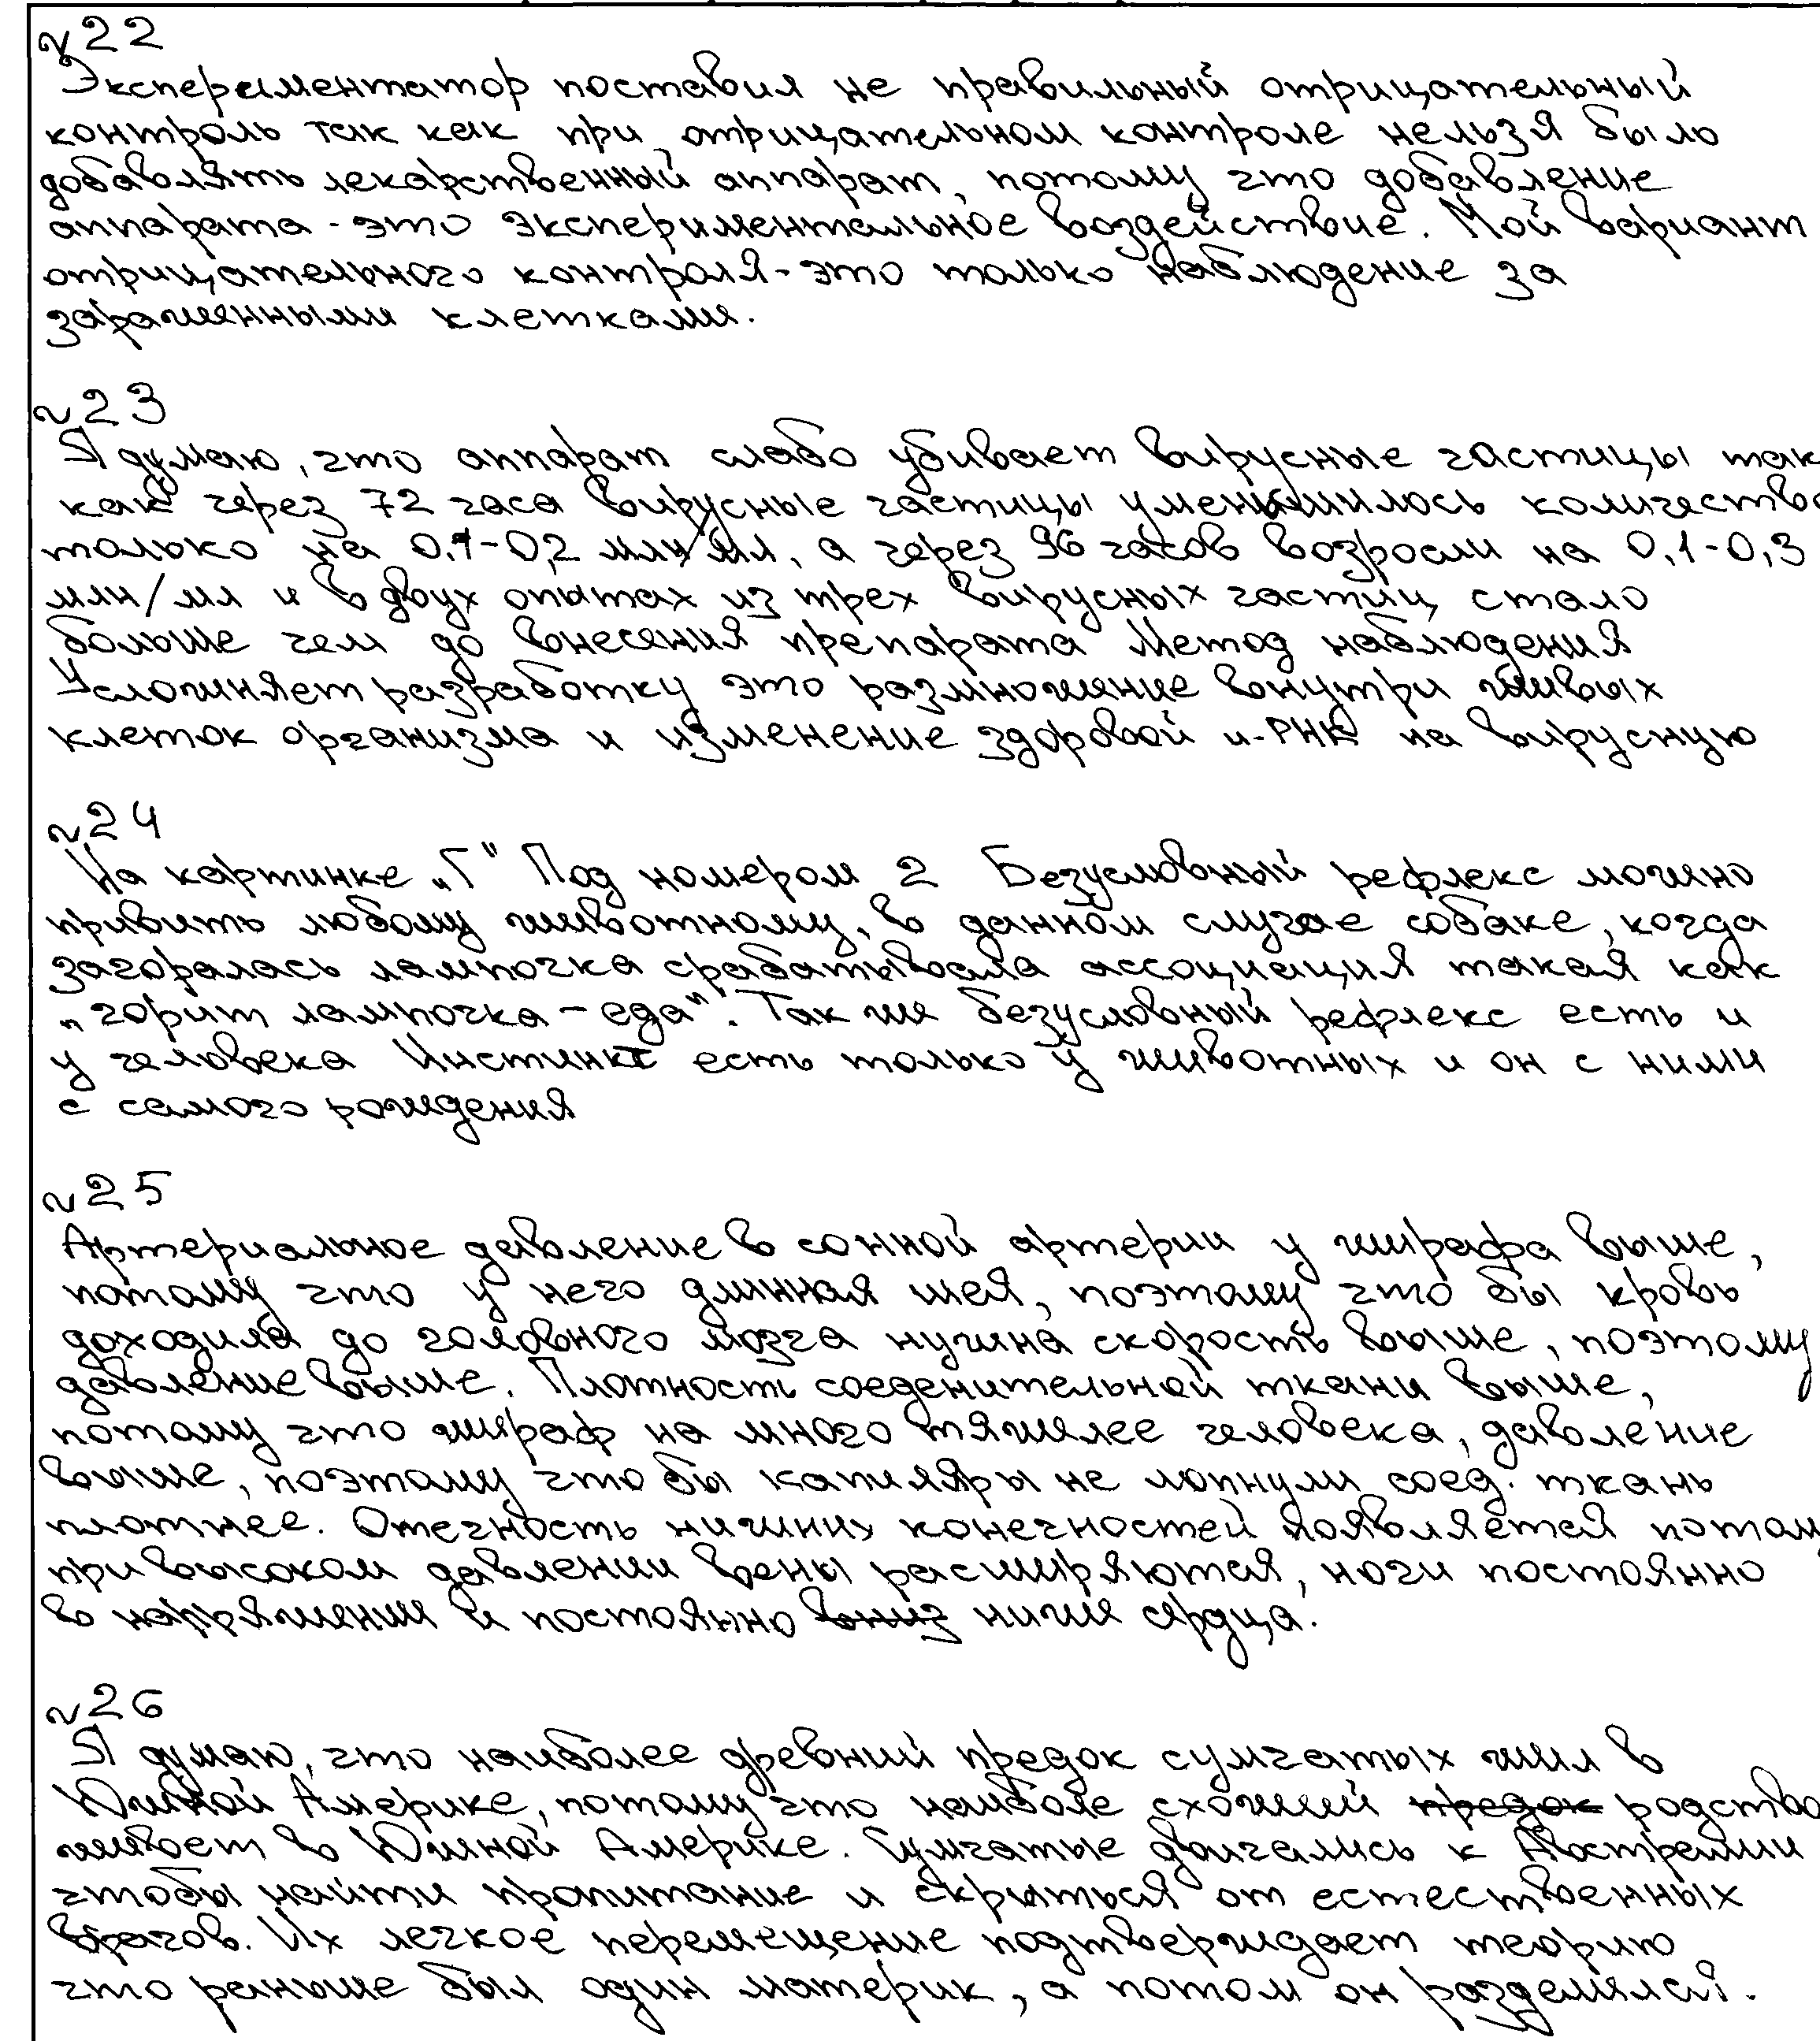 №22
Эксперементатор поставил не правильный отрицательный
контроль так как при отрицательном контроле нельзя было
добавлять лекарственный аппарат, потому что добавление
аппарата - это экспериментальное воздействие. Мой вариант
отрицательного контроля - это только наблюдение за
зараженными клетками.
№23
Я думаю, что аппарат слабо убивает вирусные частицы так
как через 72 часа вирусные частицы уменьшилось количество
только на 0,1-0,2 млн/мл, а через 96 часов возросли на 0,1-0,3
млн/мл и в двух опытах из трех вирусных частиц стало
больше чем до внесения препарата Метод наблюдения
Усложняет разработку это размножение внутри живых
клеток организма и изменение здоровой и-РНК на вирусную
№24
На картинке „Г" Под номером 2 Безусловный рефлекс можно
привить любому животному, в данном случае собаке, когда
загоралась лампочка срабатывала ассоциация такая как
„горит лампочка - еда". Так же безусловный рефлекс есть и
у человека Инстинкт есть только у животных и он с ними
с самого рождения
№25
Артериальное давление в сонной артерии у жирафа выше,
потому что у него длинная шея, поэтому что бы кровь
доходила до головного мозга нужна скорость выше, поэтому
давление выше. Плотность соеденительной ткани выше,
потому что жираф на много тяжелее человека, давление
выше, поэтому что бы капиляры не лопнули соед. ткань
плотнее. Отечность нижних конечностей появляется потому
при высоком давлении вены расширяются, ноги постоянно
в напряжении и постоянно вниз ниже сердца.
№26
Я думаю, что наиболее древний предок сумчатых жил в
Южной Америке, потому что наиболе схожий предок родство
живет в Южной Америке. Сумчатые двигались к Австралии
чтобы найти пропитание и скрыться от естественных
врагов. Их легкое перемещение подтверждает теорию
что раньше был один материк, а потом он разделился.